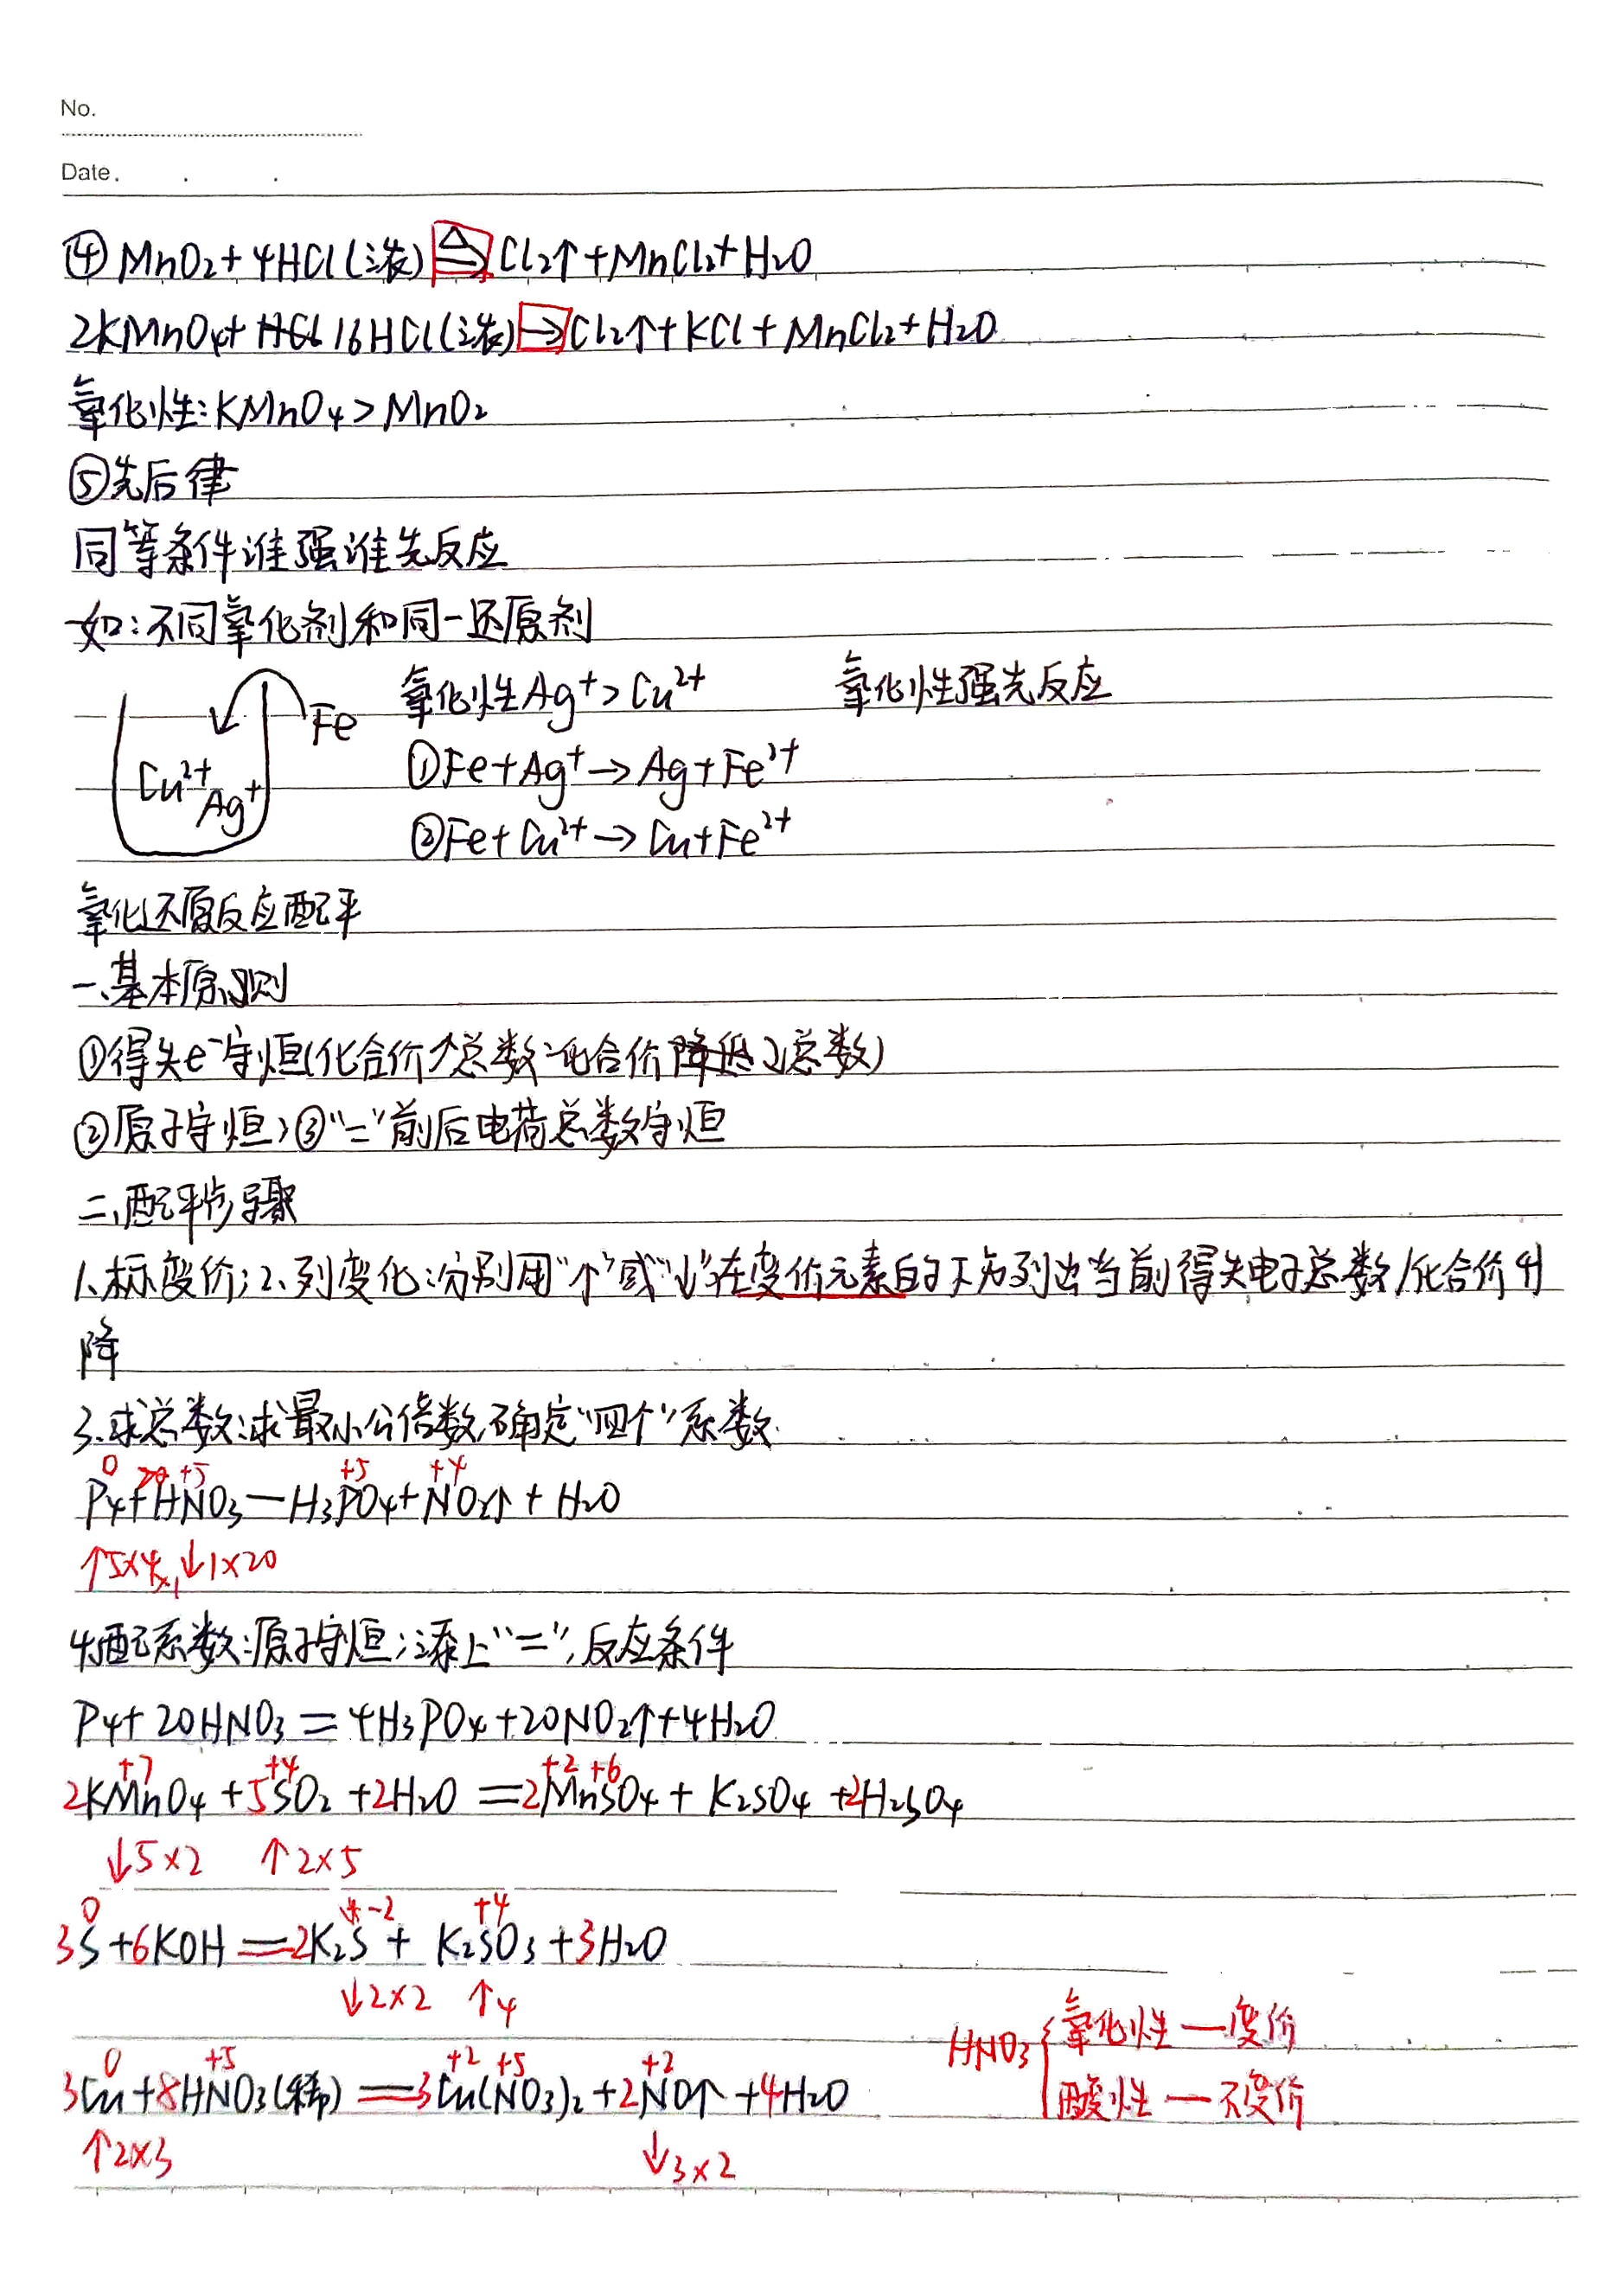 No.
Date. . .
④MnO₂+4HCl(浓) △→ Cl₂↑+MnCl₂+H₂O
2KMnO₄+ 16HCl(浓)→Cl₂↑+KCl+MnCl₂+H₂O
氧化性:KMnO₄>MnO₂
⑤先后律
同等条件谁强谁先反应
如:不同氧化剂和同一还原剂
Fe
Cu²⁺ Ag⁺
氧化性Ag⁺>Cu²⁺ 氧化性强先反应
①Fe+Ag⁺→Ag+Fe²⁺
②Fe+Cu²⁺→Cu+Fe²⁺
氧化还原反应配平
一、基本原则
①得失e⁻守恒(化合价↑总数=化合价↓总数)
②原子守恒;③"="前后电荷总数守恒
二、配平步骤
1、标变价;2、列变化:分别用"↑"或"↓"在变价元素的下方列出当前得失电子总数/化合价升
降
3、求总数:求最小公倍数,确定"四个"系数
0 +5 +5 +4
P₄+HNO₃—H₃PO₄+NO₂↑+H₂O
↑5×4×1 ↓1×20
4、配系数:原子守恒;添上"=",反应条件
P₄+20HNO₃=4H₃PO₄+20NO₂↑+4H₂O
+7 +4 +2 +6
2KMnO₄+5SO₂+2H₂O=2MnSO₄+K₂SO₄+2H₂SO₄
↓5×2 ↑2×5
0 -2 +4
3S+6KOH=2K₂S+K₂SO₃+3H₂O
↓2×2 ↑4
HNO₃{氧化性—变价
酸性—不变价
0 +5 +2 +5 +2
3Cu+8HNO₃(稀)=3Cu(NO₃)₂+2NO↑+4H₂O
↑2×3 ↓3×2